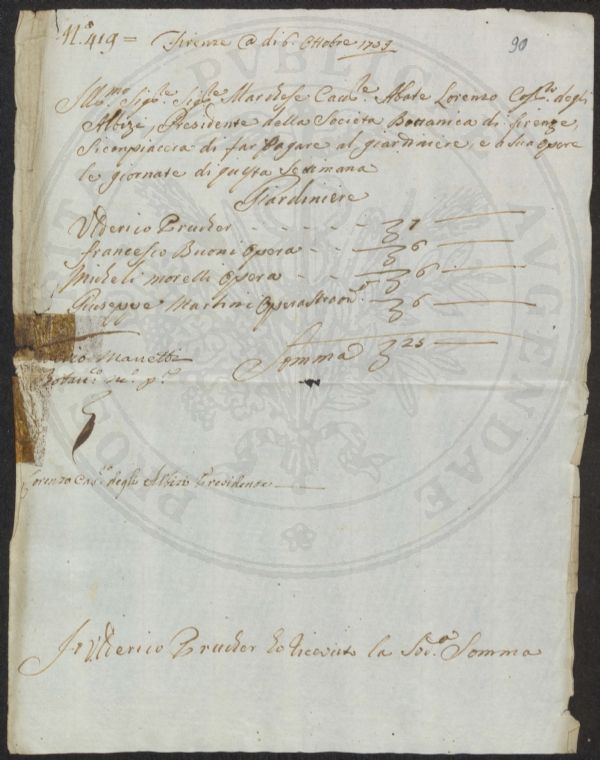 N.° 419 = Firenze @ di 6. Ottobre 1739
90
Ill.mo Sig.re Sig.re Marchese Cav.re Abate Lorenzo degli
Albizi, Presidente della Società Bottanica di firenze,
Si compiacerà di far Pagare al giardiniere, e a sua Opere
le giornate di questa Settimana
Giardiniere
Vlderico Prucher - - - - - - 7
francesco Buoni Opera - - - 6
Micheli morelli Opera - - - 6
Giuseppe Martini Opera Straor.a 6
Manetti
Somma 25
Lorenzo degli Albizi Presidente
Io Vlderico Prucher ho riceuuto la Sod.a Somma
PVBLICAE
PROSPERITATI AVGENDAE